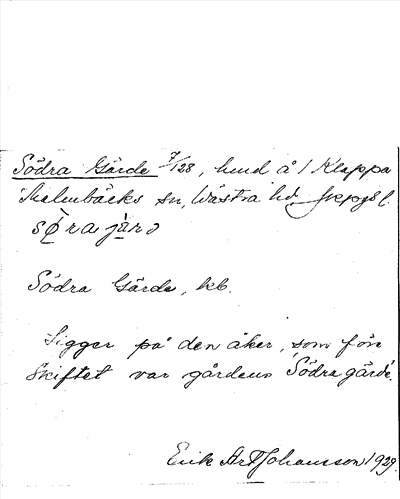 Södra Gärde 7/128, hmd å 1 Klappa
Malmbäcks sn, Västra hd. Jkpgs l.
Södra Gärde, kb.
Ligger på den åker, som före
skiftet var gårdens "Södra gärde".
Erik Art Johansson 1929.